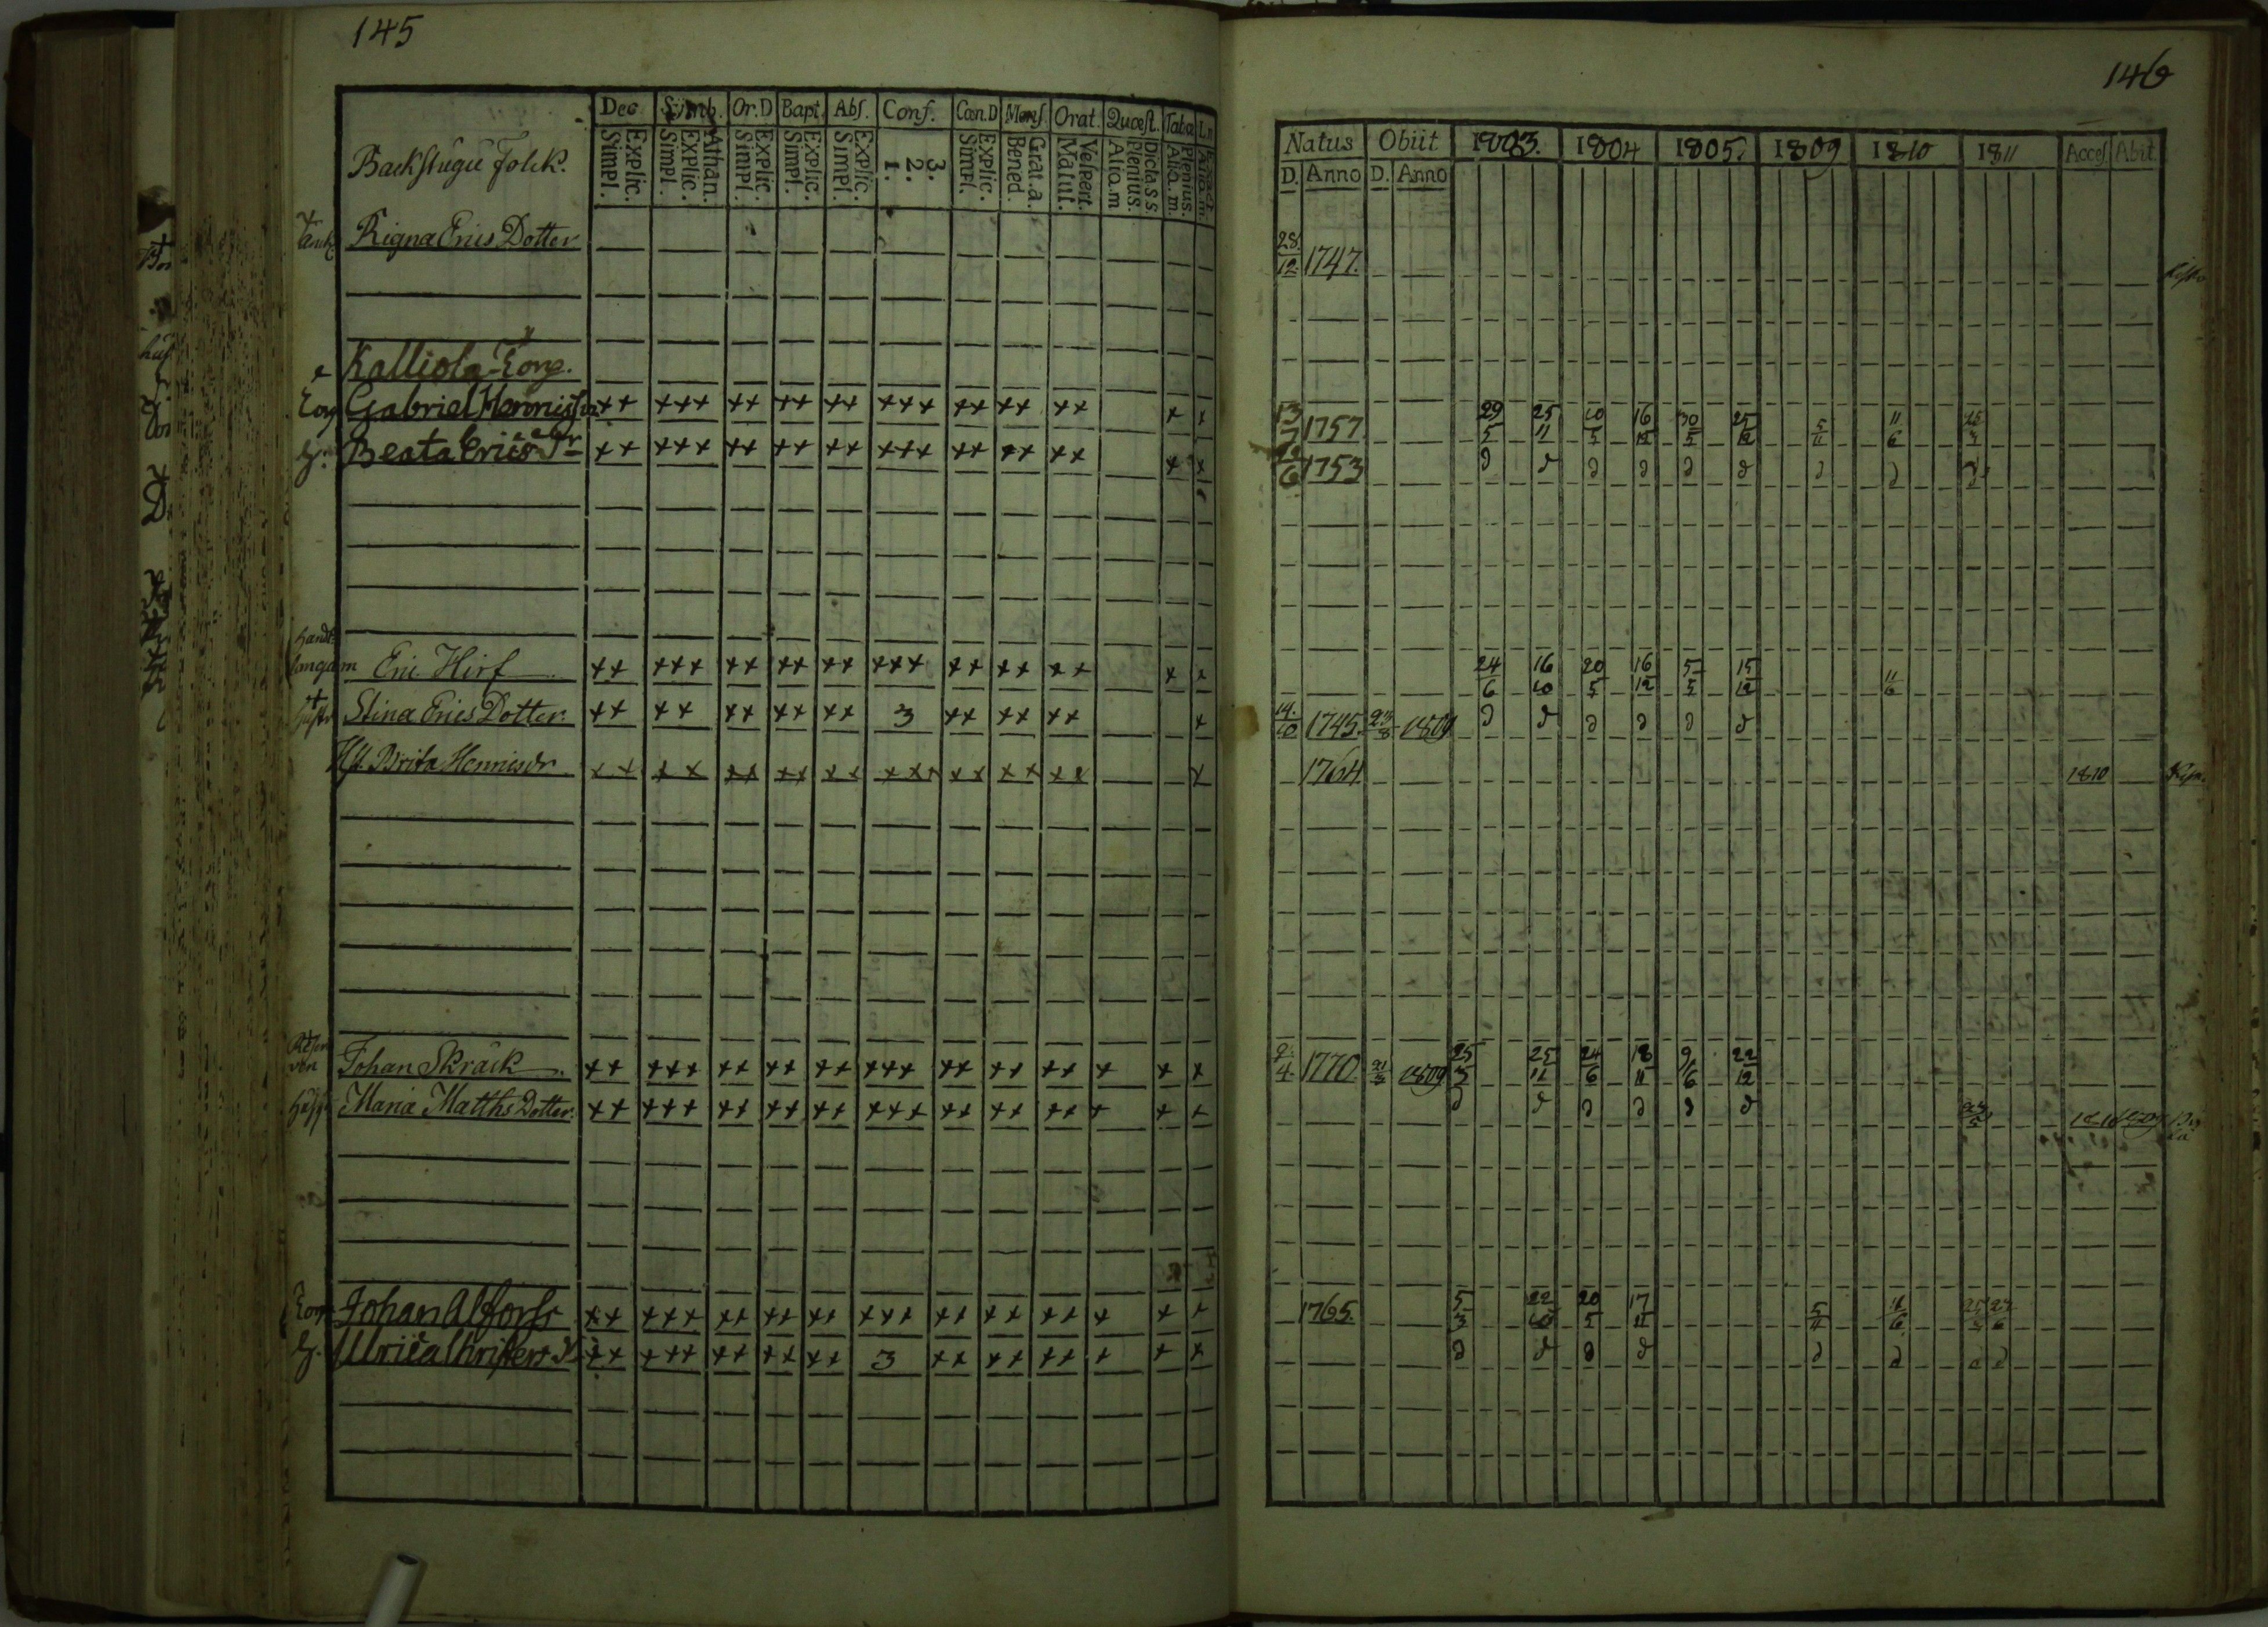 145
Dec Simb. Or.D Bapt. Abs. Conf. Cœn.D Mens. Orat. Quæst. Taba
Backstugu Folck.
Explic. Simpl. Athan. Explic. Simpl. Explic. Simpl. Explic. Simpl. Explic. Simpl. 3. 2. 1. Explic. Simpl. Grat.a. Bened. Velpert. Matut. Dicta.s.s. Plenius. Alio.m Plenius. Alio.m.
Rigna Erics Dotter
Kalliola Torp.
Torp Gabriel Hennisson ++ +++ ++ ++ ++ +++ ++ ++ ++ + +
H. Beata Erics Dr ++ +++ ++ ++ ++ +++ ++ ++ ++ + +
Handt
langarn Eric Hirf ++ +++ ++ ++ ++ +++ ++ ++ ++ + +
Hustr Stina Erics Dotter ++ ++ ++ ++ ++ 3 ++ ++ ++ +
Brita Hennisdr ++ ++ ++ ++ ++ +++ ++ ++ ++ +
Johan Skräck ++ +++ ++ ++ ++ +++ ++ ++ ++ + + +
Maria Matths Dotter ++ +++ ++ ++ ++ +++ ++ ++ ++ + + +
Torp Johan Alfors ++ +++ ++ ++ ++ +++ ++ ++ ++ + + +
H. Ulrica ++ +++ ++ ++ ++ 3 ++ ++ ++ + + +
146
Natus Obiit 1803. 1804 1805. 1809 1810 1811 Acces. Abit.
D. Anno D. Anno
28/12 1747.
13/7 1757. 29/5 25/11 20/5 16/12 30/5 25/12 5/11 11/6
1753 D D D D D D D D D
24/6 16/10 20/5 16/12 5/5 15/12 11/6
14/10 1745. 23/8 1809 D D D D D D
1764. 1810
2/4 1770 21/3 1809 25/3 25/11 24/6 18/11 9/6 22/12
D D D D D D 23/5
1765. 5/3 22/10 20/5 17/11 5/11 11/6
D D D D D D D D